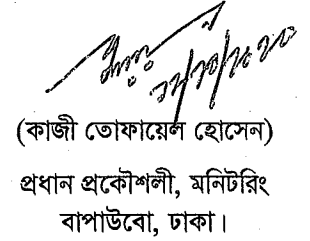 (কাজী তোফায়েল হোসেন)
প্রধান প্রকৌশলী, মনিটরিং
বাপাউবো, ঢাকা।